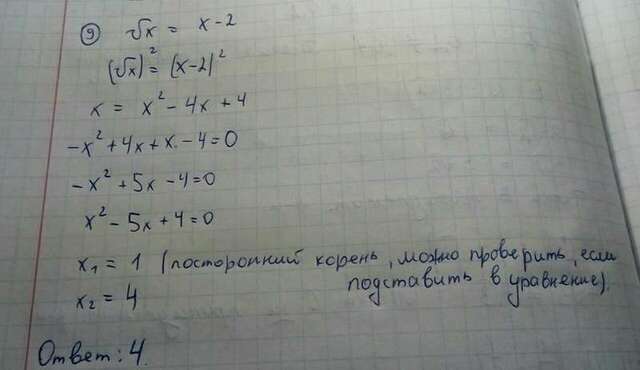 9 √x = x-2
(√x)² = (x-2)²
x = x² - 4x + 4
-x² + 4x + x - 4 = 0
-x² + 5x - 4 = 0
x² - 5x + 4 = 0
x₁ = 1 (посторонний корень, можно проверить, если
x₂ = 4 подставить в уравнение).
Ответ: 4.